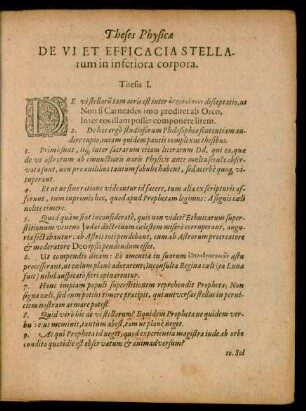 Theses Physicæ
DE VI ET EFFICACIA STELLA-
rum in inferiora corpora.
Thesis I.
DE vi stellarũ tam acris est inter disceptatio, ut
Non si Carneades imò prodiret ab Orco,
Inter eos illam posset componere litem.
2. De hac ergò studiosarum Philosophiæ sententiam au-
dere cupio, meam quidem paucis complexus thesibus.
3. Primò sunt, iiq́; inter sacrarum etiam literarum Dd. qui ex, quæ
de vi astrorum ab emunctioris naris Physicis ante multa secula obser-
vata sunt, uon pro anilibus tantum fabulis habent, sed acerbè quoq; vi-
tuperent.
4. Et ut ne sine ratione videantur id facere, tum alia ex scripturis af-
ferunt, tum inprimis hoc, quod apud Prophetam legimus: A signis cœli
nolite timere.
5. Quod quàm sint inconsideratè, quis non videt? Ethnicarum super-
stitionum vanitas Judæi doctrinam cœlestem miserè corruperant, augu-
ria sectabantur: ab Astris toti pendebant, cum ab Astrorum procreatore
& moderatore Deo ipso pendendum esset.
6. Ut compendio dicam: Eò amentiæ in suarum astu
processerunt, ut cœlum planè adorarent, inconsulta Regina cœli (ea Luna
fuit) nihil auspicatò fieri opinarentur.
7. Hanc impiam populi superstitionem reprehendit Propheta; Non
signa cœli, sed enm potius timere præcipit, qui universas stellas in perni-
ciem nostram armare potest.
8. Quid verò hic de vi stellarum? Equidem Propheta ne quidem ver-
bo ve us meminit, tantùm abest, eam ut planè neget.
9. At qui Propheta id neget, quod experientia magistra inde ab orbe
condito quotidie est observatum & animadversum?
10. Sol